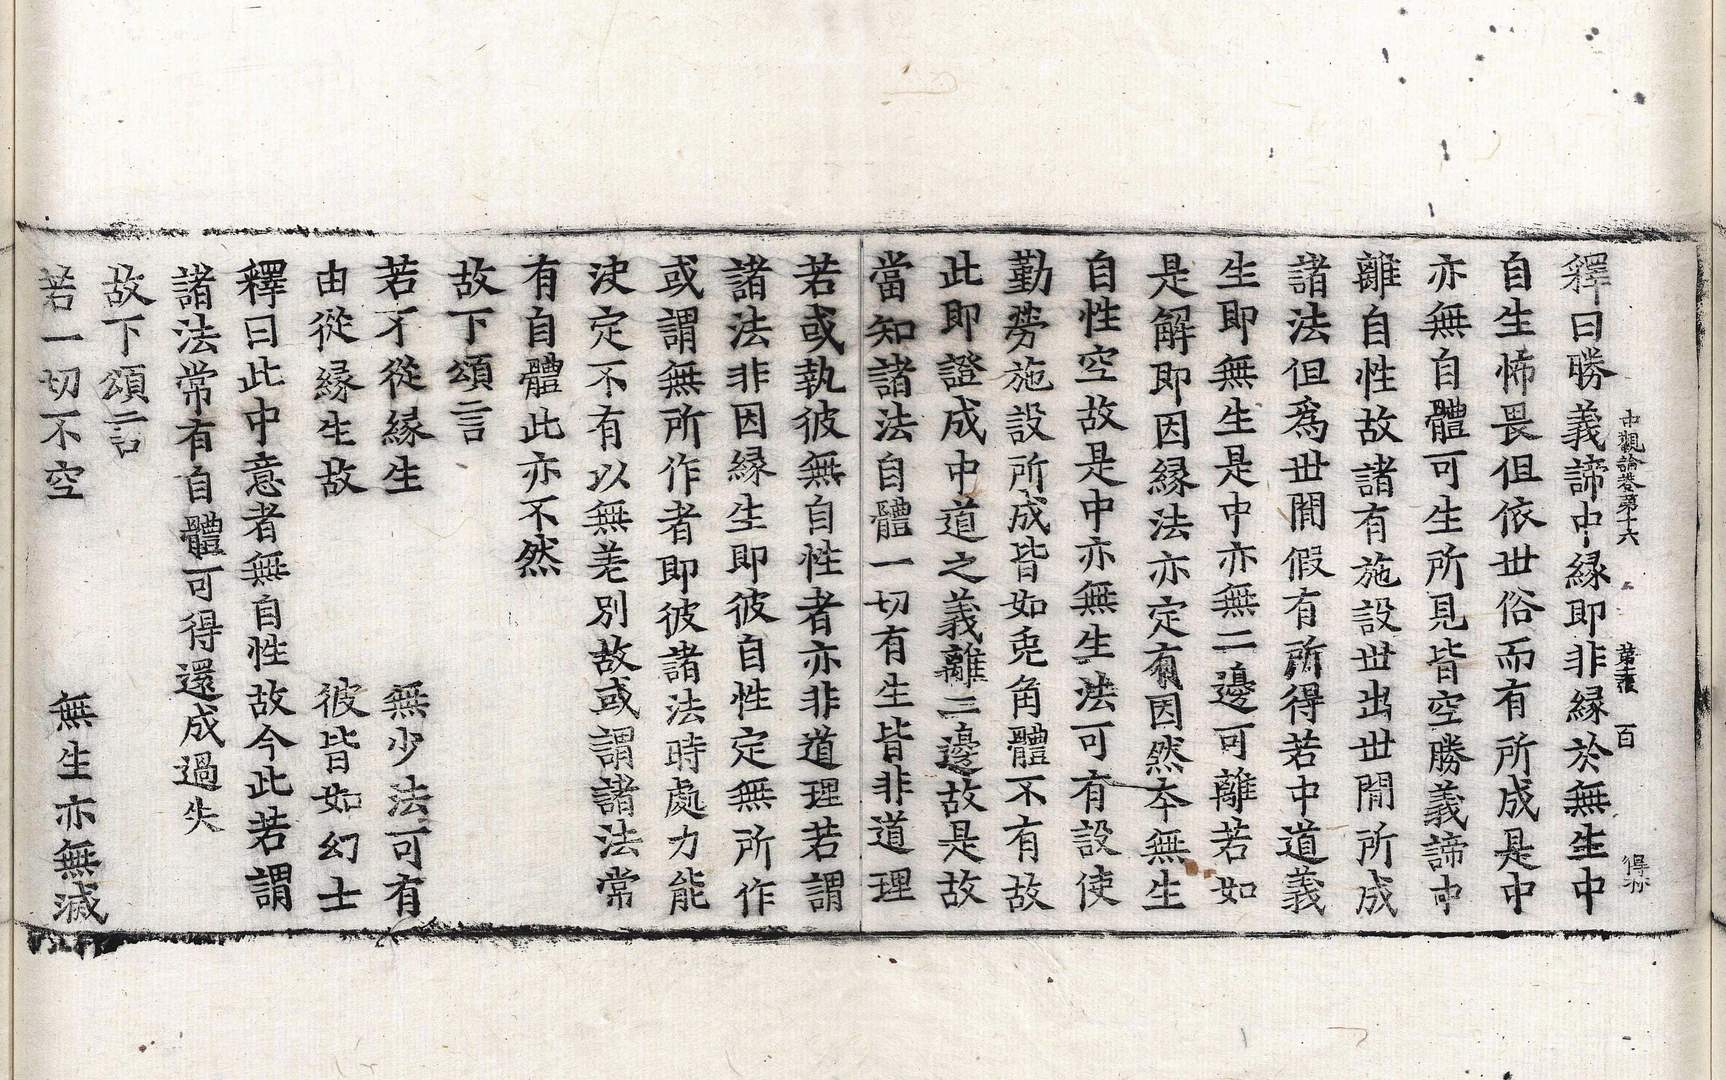 中觀論卷第十六 第十張 百
釋曰勝義諦中緣即非緣於無生中
自生怖畏但依世俗而有所成是中
亦無自體可生所見皆空勝義諦中
離自性故諸有施設世出世間所成
諸法但爲世間假有所得若中道義
生即無生是中亦無二邊可離若如
是解即因緣法亦定有因然本無生
自性空故是中亦無生法可有設使
勤勞施設所成皆如兎角體不有故
此即證成中道之義離二邊故是故
當知諸法自體一切有生皆非道理
若或執彼無自性者亦非道理若謂
諸法非因緣生即彼自性定無所作
或謂無所作者即彼諸法時處力能
決定不有以無差別故或謂諸法常
有自體此亦不然
故下頌言
若不從緣生 無少法可有
由從緣生故 彼皆如幻士
釋曰此中意者無自性故今此若謂
諸法常有自體可得還成過失
故下頌言
若一切不空 無生亦無滅